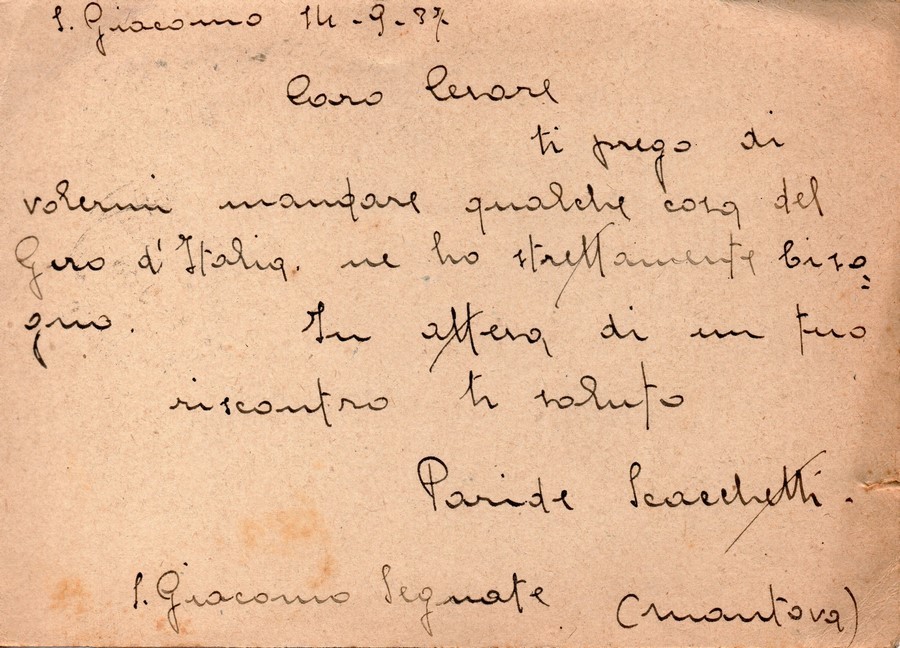 S. Giacomo 14-9-37
Caro Cesare
ti prego di
volermi mandare qualche cosa del
Giro d'Italia. ne ho strettamente biso=
gno. In attesa di un tuo
riscontro ti saluto
Paride Scacchetti.
S. Giacomo Segnate (Mantova)